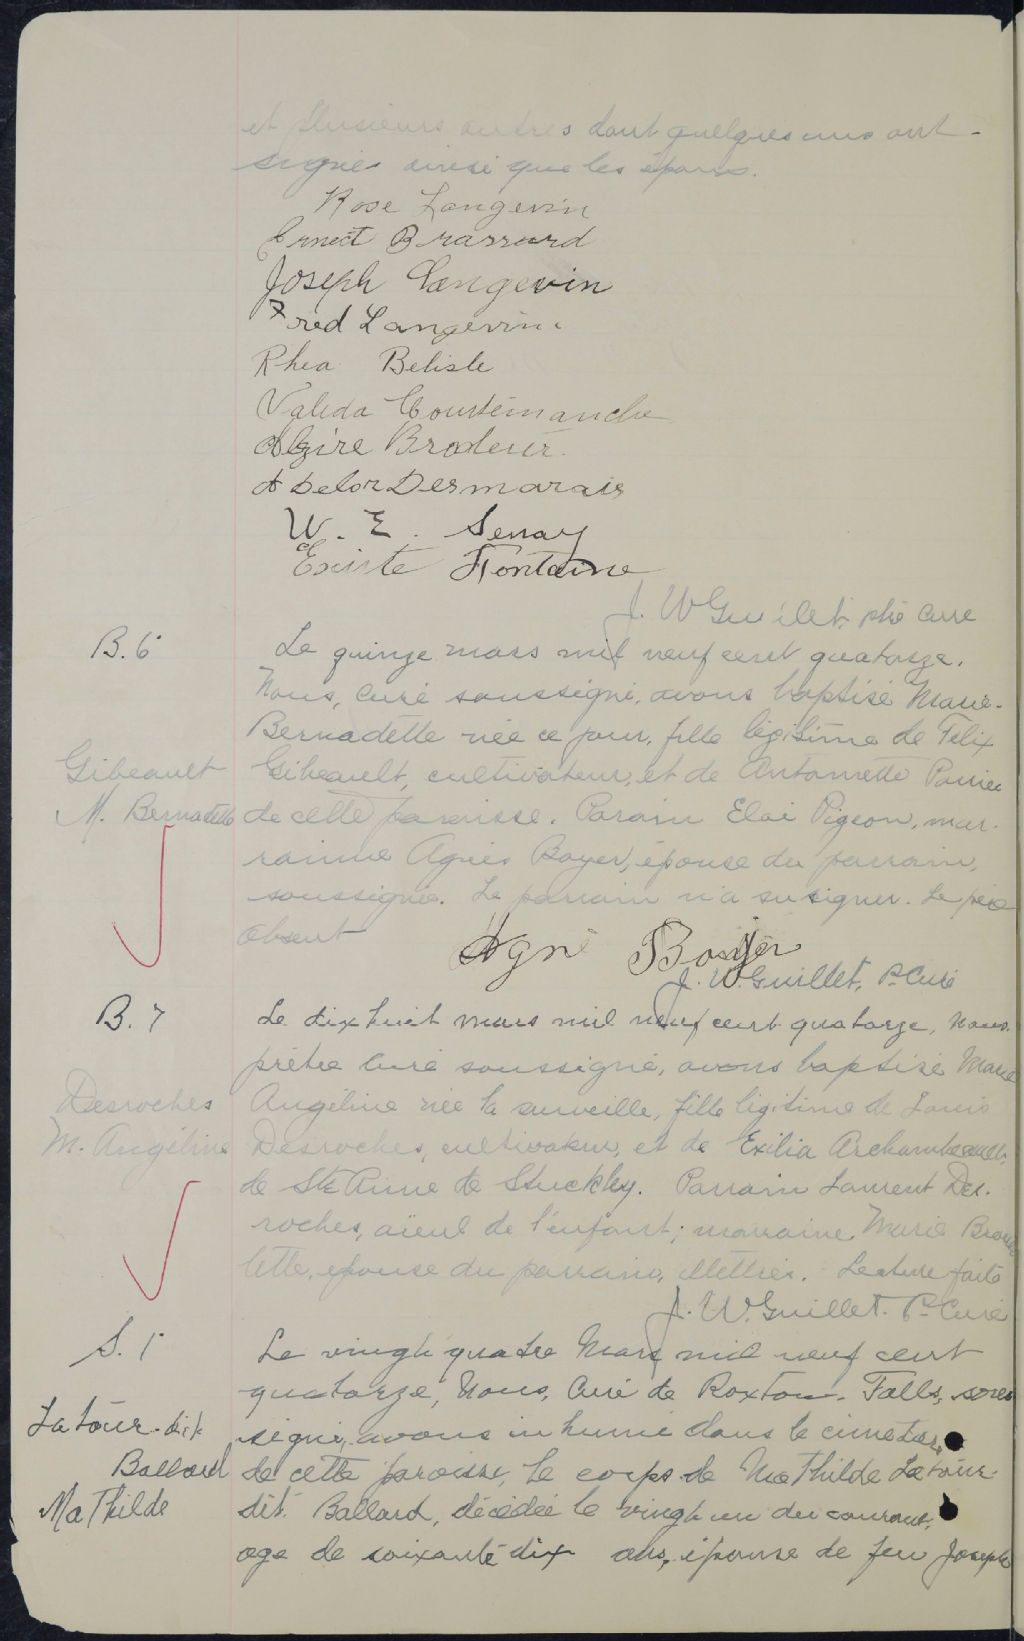 et plusieurs autres dont quelques uns ont
signé ainsi que les époux.
Rose Langevin
Ernest Brassard
Joseph Langevin
Fred Langevin
Rhea Belisle
Valida Courtemanche
Alzire Brodeur.
Adelor Desmarais
W. E. Senay
Exisite Fontaine
J. W Guillet, ptre Curé
B. 6
Le quinze mars mil neuf cent quatorze.
Nous, Curé soussigné, avons baptisé Marie-
Bernadette née ce jour, fille légitime de Félix
Gibeault
Gibeault, cultivateur, et de Antoinette
M. Bernadette
de cette paroisse. Parain Eloi Pigeon, mar-
rainne Agnès Boyer, épouse du parrain,
soussignée. Le parrain n'a su signer. Le père
absent
Agné Boyer
J. W. Guillet, P. Curé
B. 7
Le dix huit mars mil neuf cent quatorze, nous
prêtre curé soussigné, avons baptisé Marie
Desroches
Angéline née la surveille, fille légitime de Louis
M. Angéline
Desroches, cultivateur, et de Exilia Archambeault,
de Ste Anne de Stuckley. Parrain Laurent Des-
roches, aïeul de l'enfant; marraine, Marie
lette, épouse du parrain, illettrés. Lecture faite
J. W. Guillet. P. Curé
S. 5
Le vingt quatre Mars mil neuf cent
quatorze, Nous, Curé de Roxton Falls, sous
Latour-dit
signé, avons inhumé dans le cimetière
Ballard
de cette paroisse, le corps de Mathilde Latour-
MaThilde
dit Ballard, décédée le vingt un du courant,
age de soixante dix ans, épouse de feu Joseph